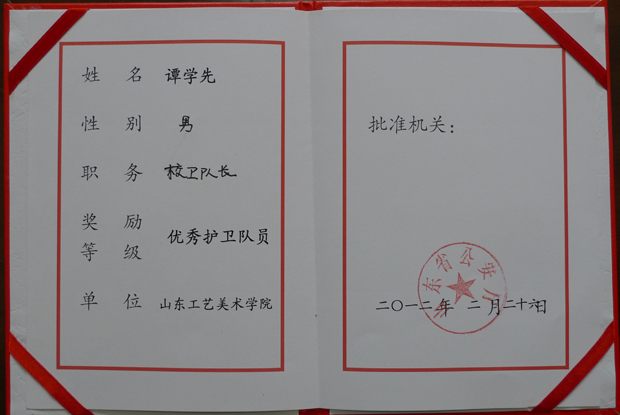 姓名 谭学先
性别 男
职务 校卫队长
奖励等级 优秀护卫队员
单位 山东工艺美术学院
批准机关：
山东省公安厅
二〇一二年 二月二十六日